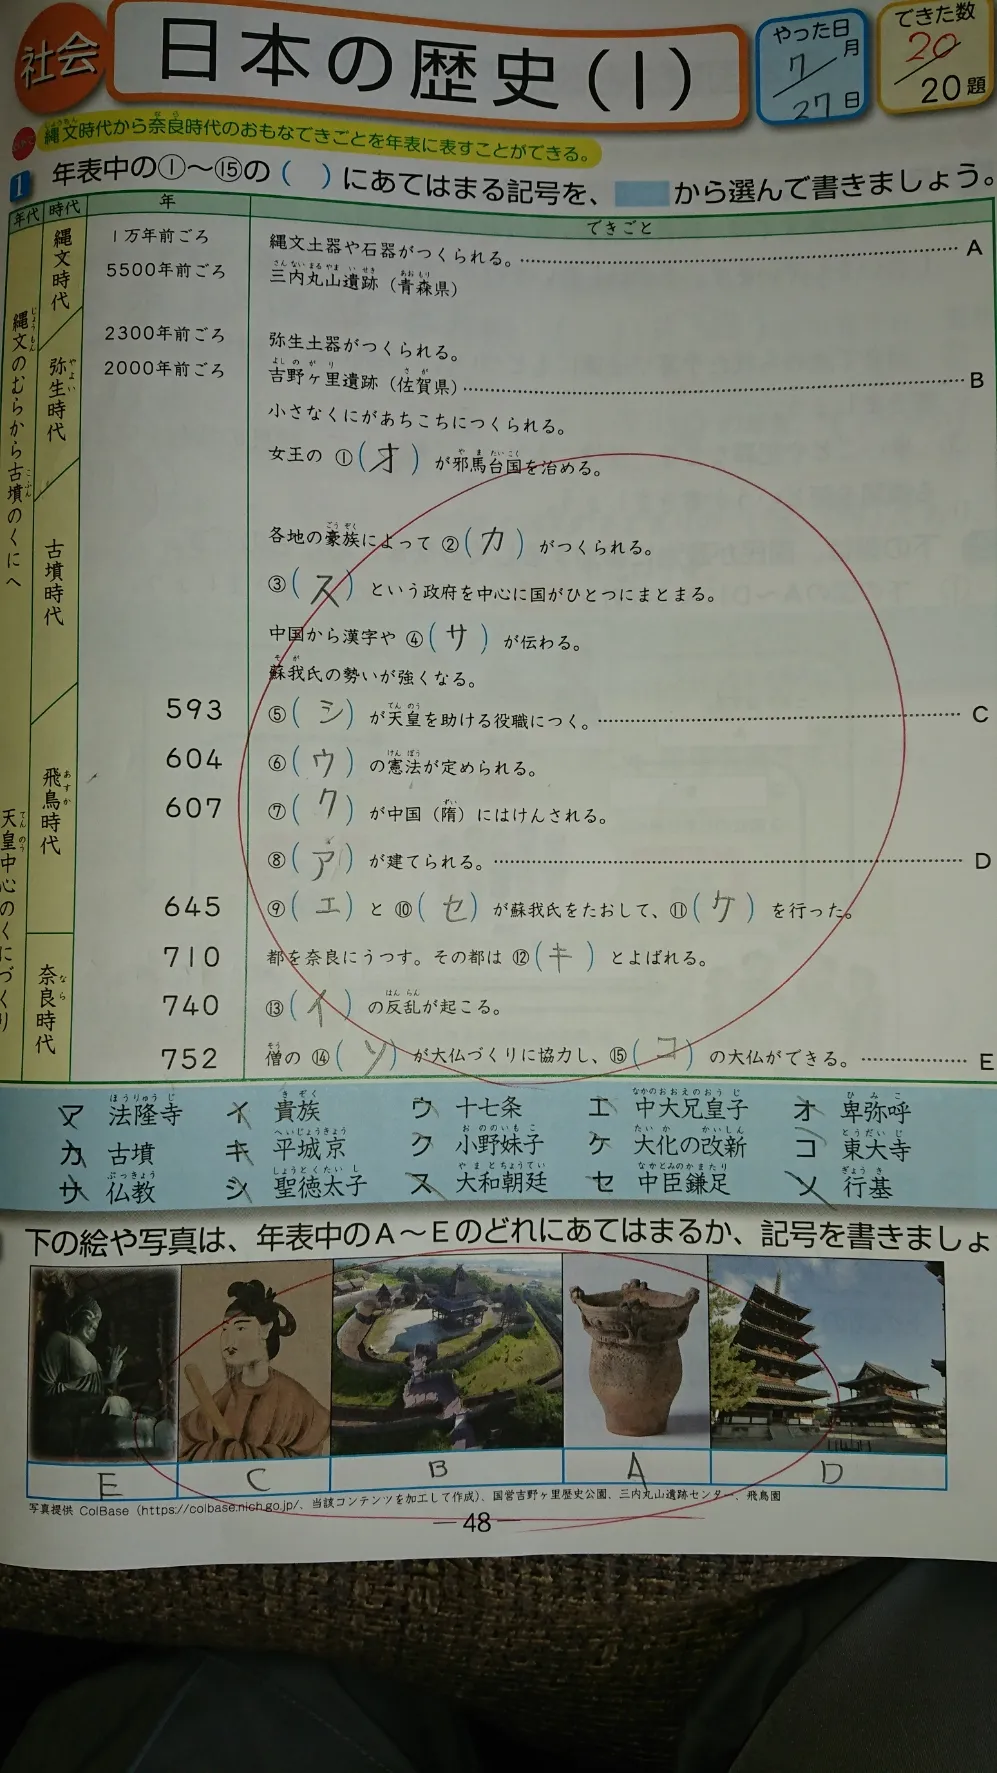 社会
日本の歴史(1)
やった日
7月
27日
できた数
20
20題
縄文時代から奈良時代のおもなできごとを年表に表すことができる。
1 年表中の①〜⑮の( )にあてはまる記号を、 から選んで書きましょう。
年代 時代 年 できごと
縄文のむらから古墳のくにへ
天皇中心のくにづくり
縄文時代
1万年前ごろ 縄文土器や石器がつくられる。 A
5500年前ごろ 三内丸山遺跡(青森県)
弥生時代
2300年前ごろ 弥生土器がつくられる。
2000年前ごろ 吉野ヶ里遺跡(佐賀県) B
小さなくにがあちこちにつくられる。
女王の ①(オ)が邪馬台国を治める。
古墳時代
各地の豪族によって ②(カ)がつくられる。
③(ス)という政府を中心に国がひとつにまとまる。
中国から漢字や ④(サ)が伝わる。
蘇我氏の勢いが強くなる。
飛鳥時代
593 ⑤(シ)が天皇を助ける役職につく。 C
604 ⑥(ウ)の憲法が定められる。
607 ⑦(ク)が中国(隋)にはけんされる。
⑧(ア)が建てられる。 D
645 ⑨(エ)と ⑩(セ)が蘇我氏をたおして、⑪(ケ)を行った。
奈良時代
710 都を奈良にうつす。その都は ⑫(キ)とよばれる。
740 ⑬(イ)の反乱が起こる。
752 僧の ⑭(ソ)が大仏づくりに協力し、⑮(コ)の大仏ができる。 E
ア 法隆寺 イ 貴族 ウ 十七条 エ 中大兄皇子 オ 卑弥呼
カ 古墳 キ 平城京 ク 小野妹子 ケ 大化の改新 コ 東大寺
サ 仏教 シ 聖徳太子 ス 大和朝廷 セ 中臣鎌足 ソ 行基
下の絵や写真は、年表中のA〜Eのどれにあてはまるか、記号を書きましょ
E C B A D
写真提供 ColBase(https://colbase.nich.go.jp/、当該コンテンツを加工して作成)、国営吉野ヶ里歴史公園、三内丸山遺跡センター、飛鳥園
—48—